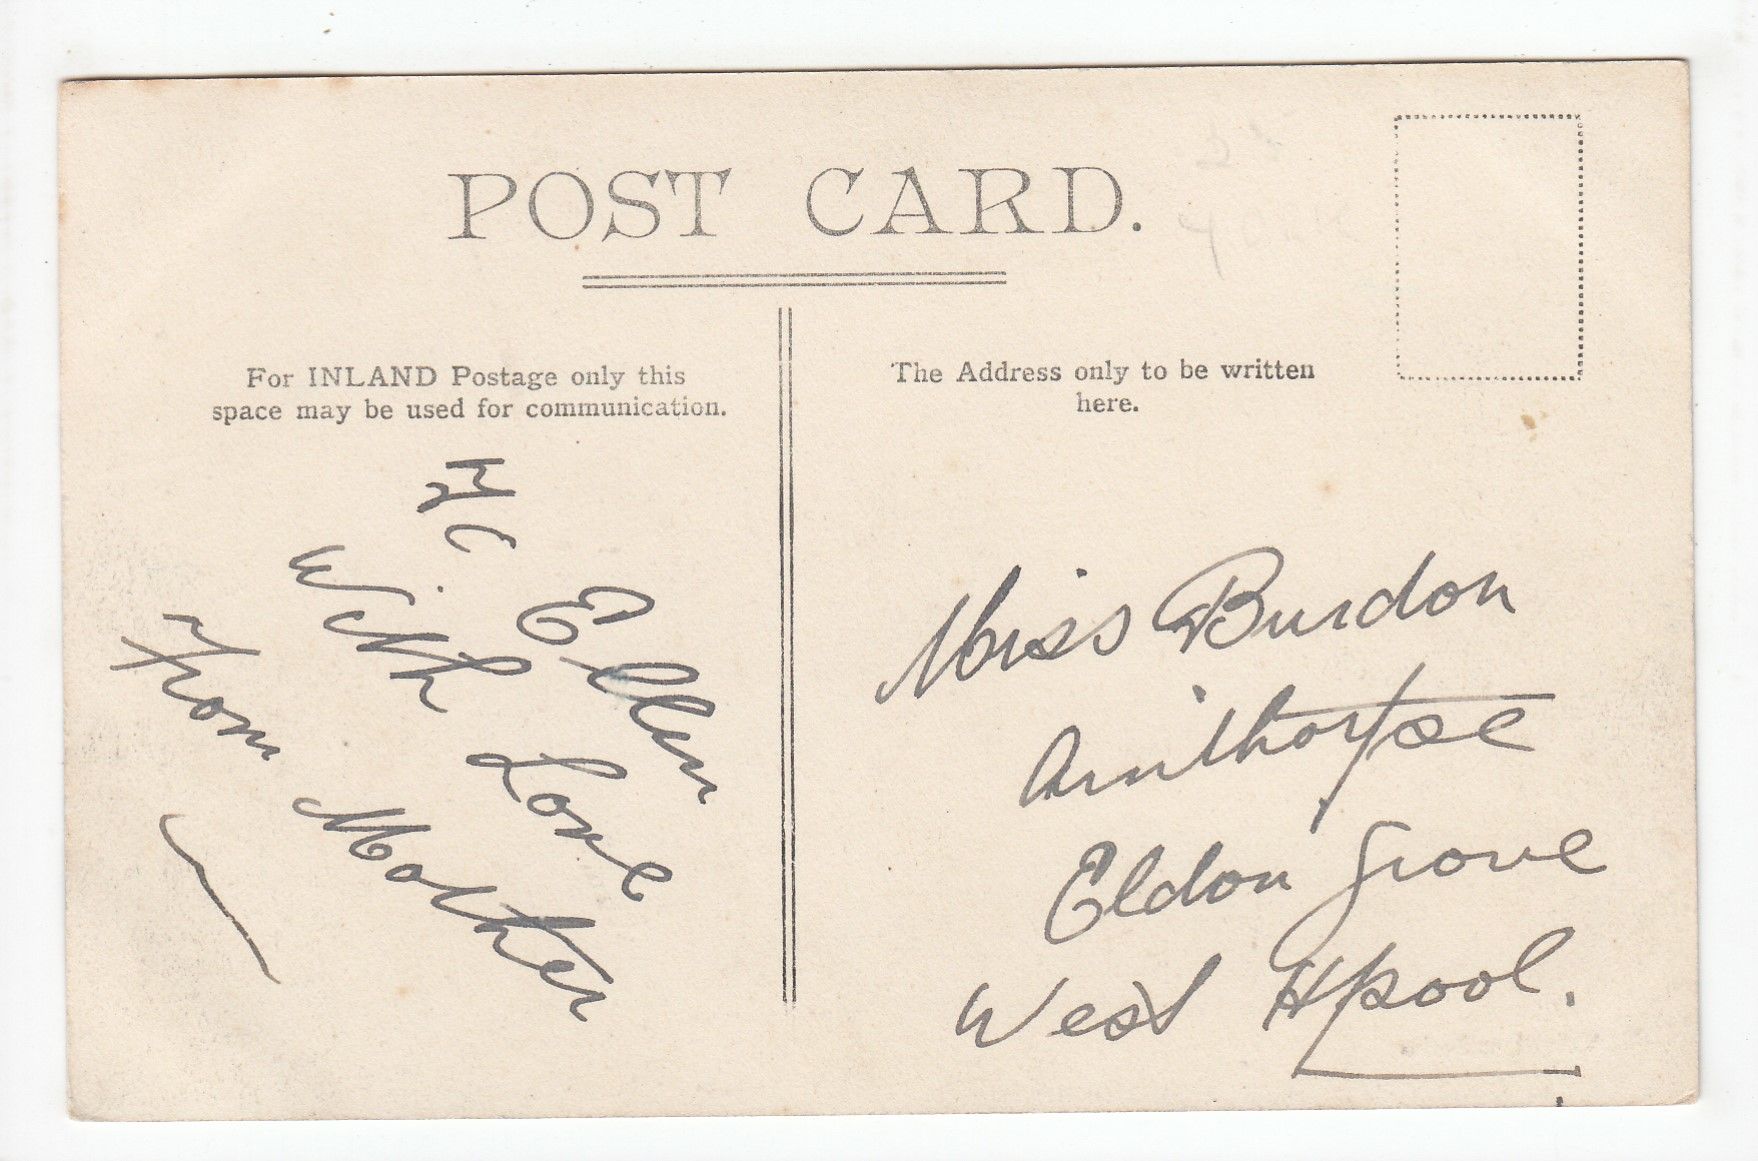 POST CARD.
For INLAND Postage only this
space may be used for communication.
To Ellen
With Love
From Mother
The Address only to be written
here.
Miss Burdon
Ainthorpe
Eldon Grove
West Hpool.